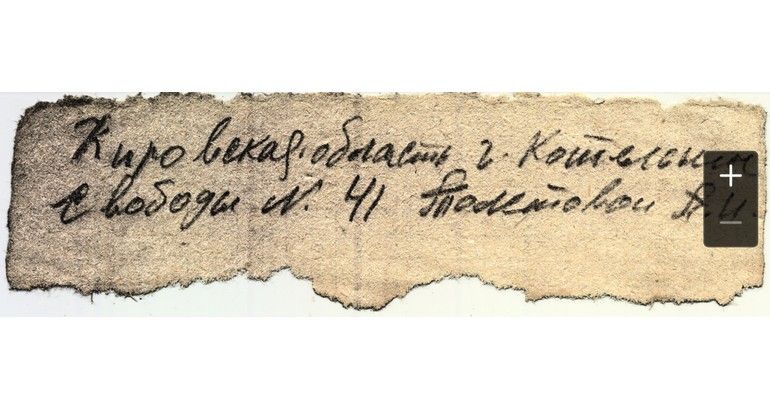 Кировская область г. Котельнич
Свободы N. 41 Толстовой